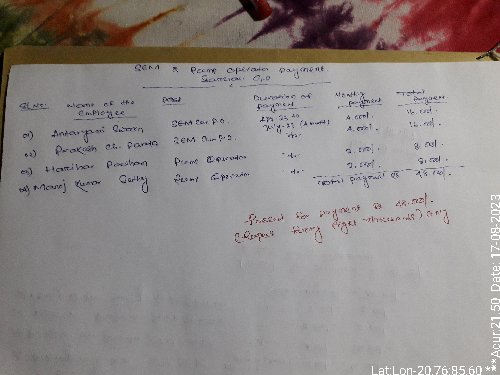 SEM & Pump operator payment
Sl. No. Name of the Employee Post Duration of payment Monthly payment Total payment
01) Antaryami Swain SEM Cum P.O. Apr 23 to July-23 (4 month) 4.000/. 16.000/.
02) Prakash Ch. Parida SEM Cum P.O. -do- 4.000/. 16.000/.
03) Harihar Pradhan Pump Operator -do- 2.000/. 8.000/.
04) Manoj Kumar Sethy Pump Operator -do- 2.000/. 8.000/.
Total payment Rs 48.000/.
Passed for payment Rs 48.000/.
(Rupees forty eight thousands) only
Lat:Lon-20.76:85.60 ***Acur:21.50 Date: 17-08-2023